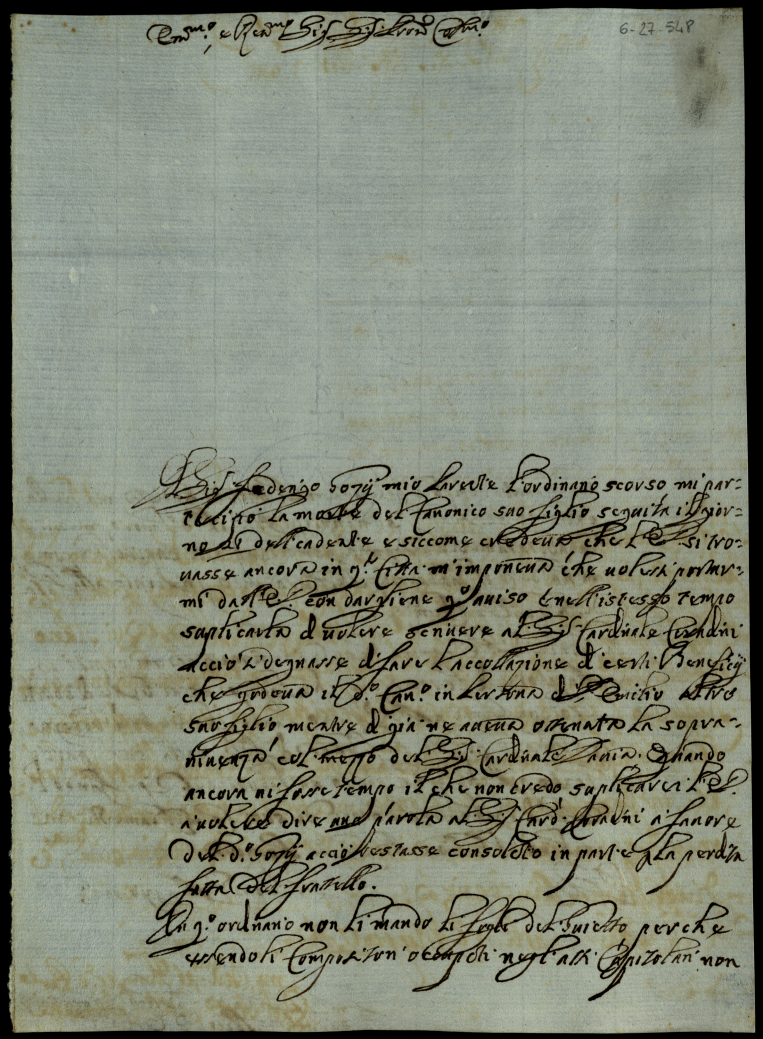 Em.mo, e Reu.mo Sig.r Sig.r Pron.e Col.mo
6-27-548
Il Sig.r Federigo Sozij mio Parente l'ordinario scorso mi par=
tecipò la morte del Canonico suo figlio seguita il gior=
no di del cadente e siccome credeua che l'E.V. si tro=
uasse ancora in q.ta Città m'imponeua che uolessi portar=
mi dall'E.V. con dargliene q.o auiso e nell'istesso tempo
suplicarla d uolere scriuere al Sig.r Cardinale Coradini
acciò si degnasse di fare la collazione di certi Beneficij
che godeua il d.o Can.o in Persona d Emilio altro
suo figlio mentre d già ne aueua ottenuta la sopra=
uiuenza col mezzo del Sig.r Cardinale Quando
ancora ui fosse tempo il che non credo suplicarei l'E.V.
a uolere dire una parola al Sig.r Card.e Coradini a fauore
del d.o Sozij acciò restasse consolato in parte p la perdita
fatta del fratello.
In q.o ordinario non li mando li fogli del perche
essendo li Compositori occupati negl'atti Capitolari non